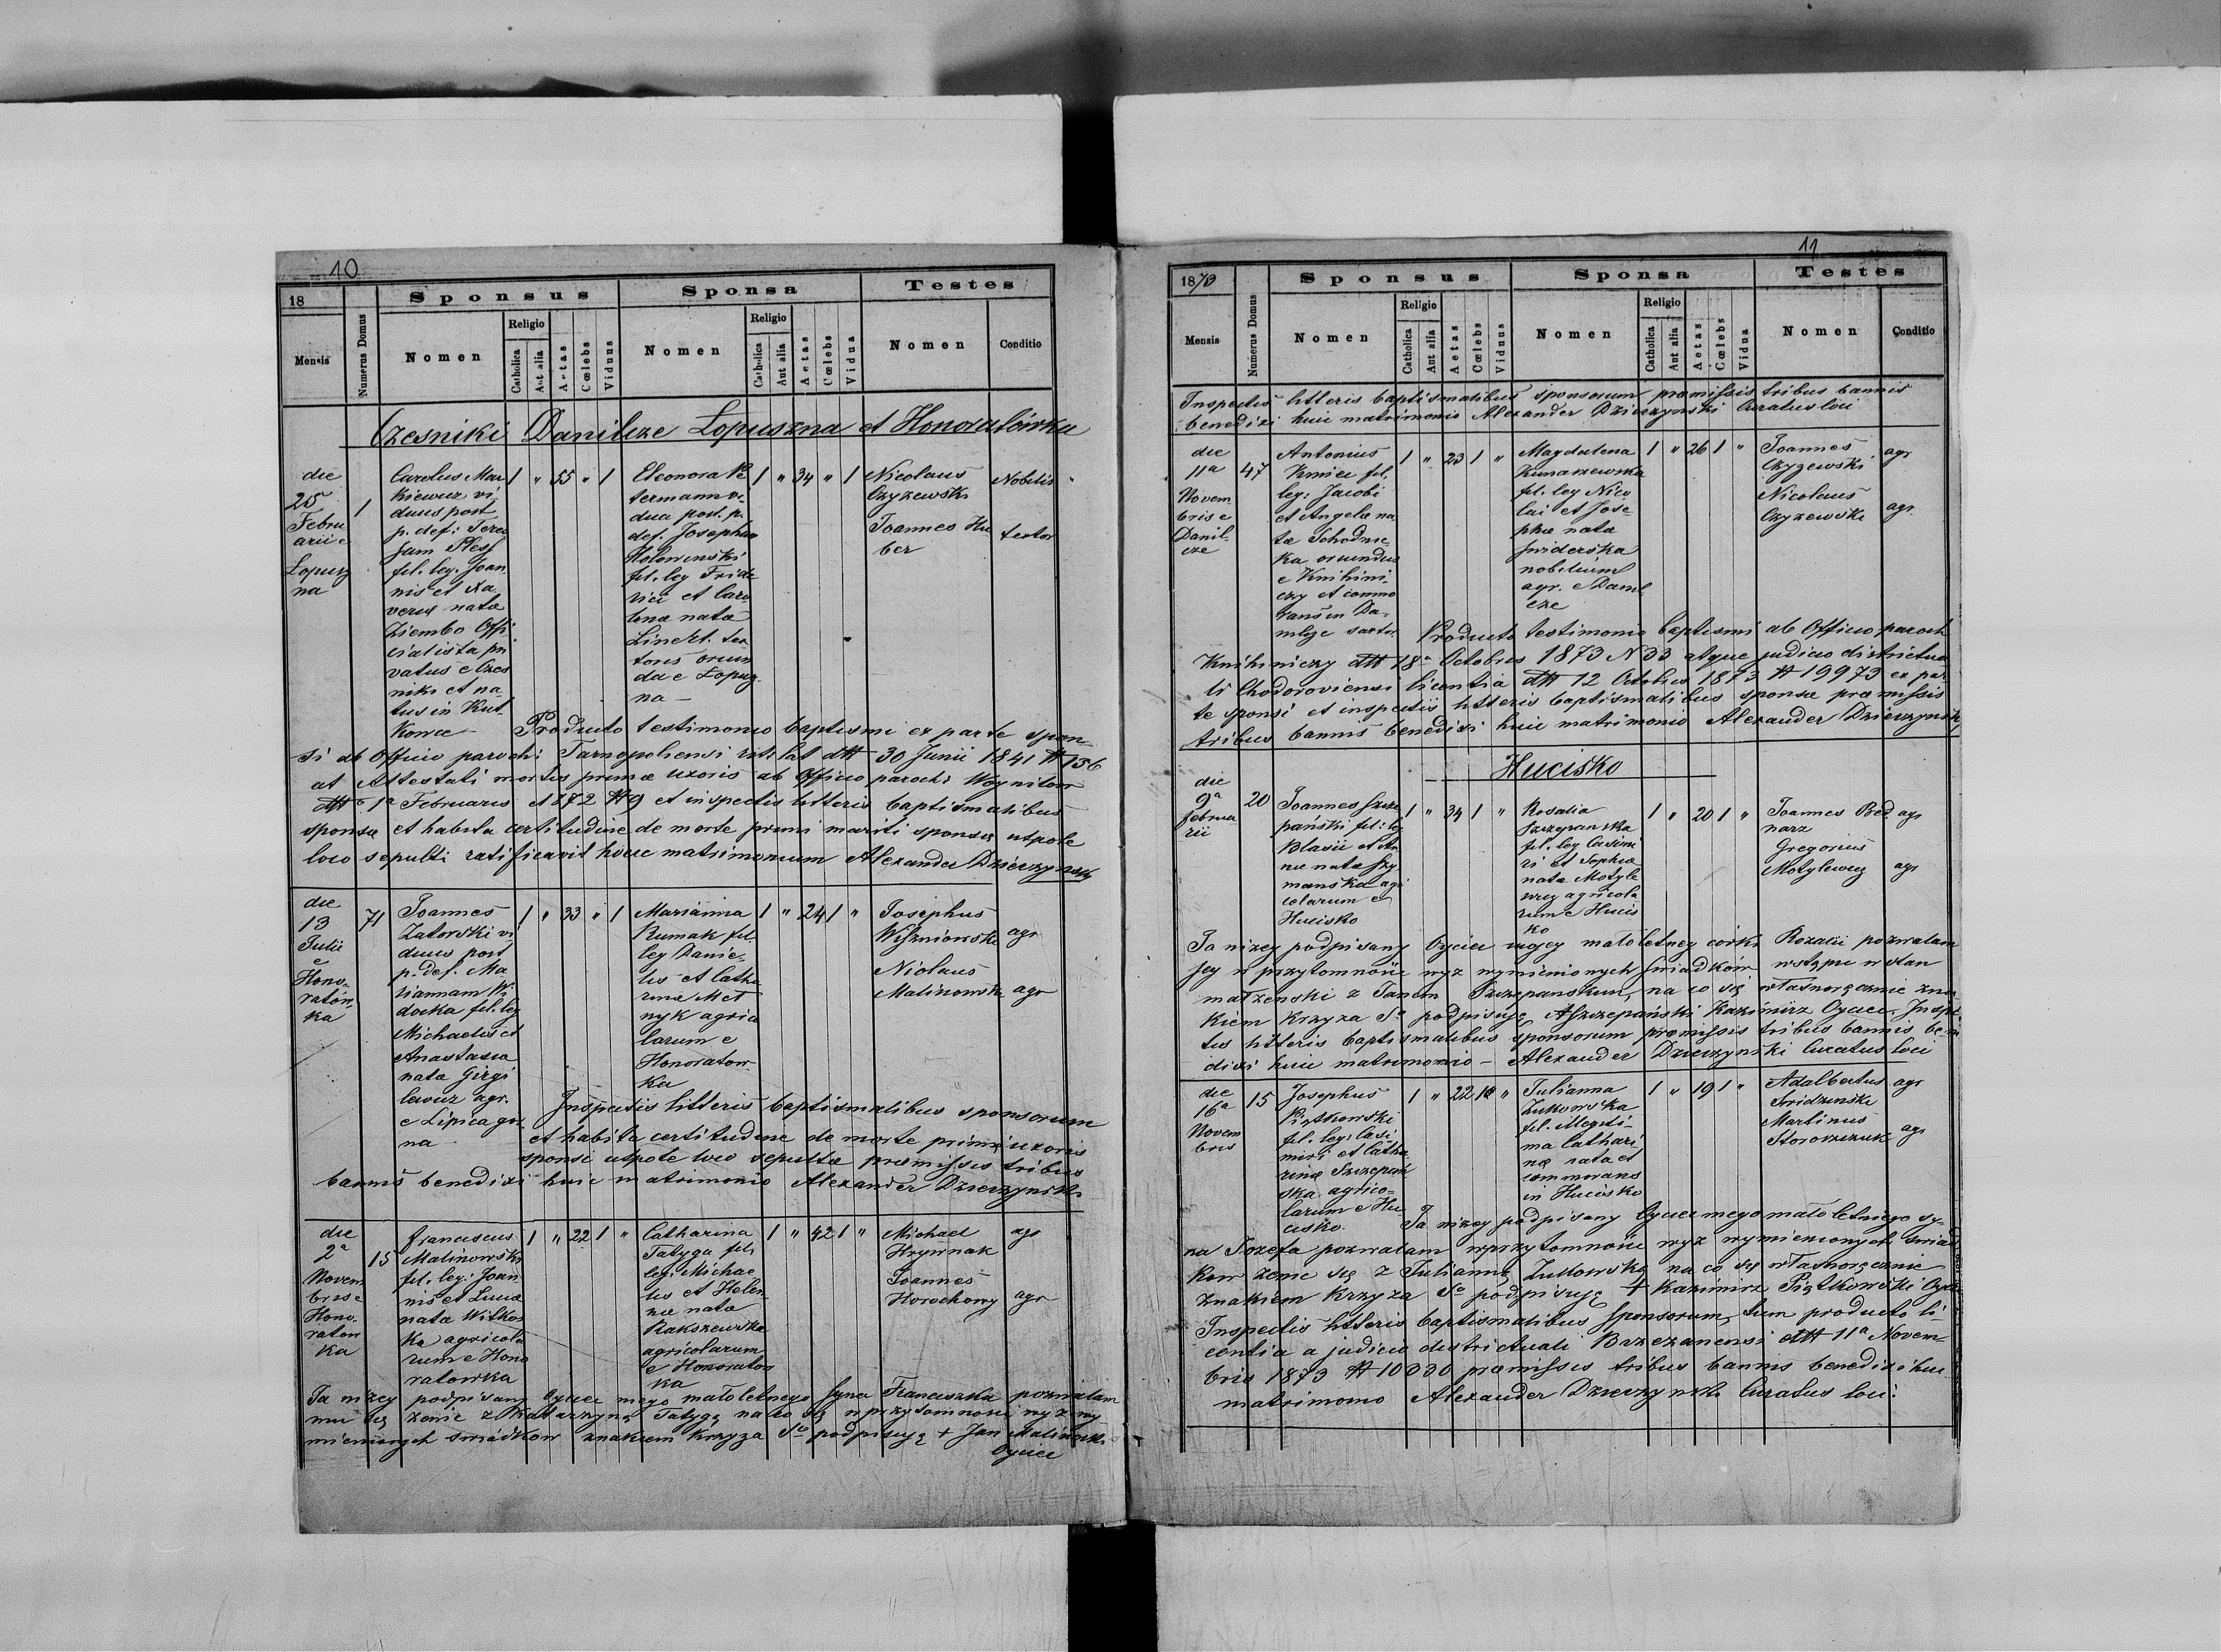 10
18
Mensis
Numerus Domus
Sponsus
Nomen
Religio
Catholica
Aut alia
Aetas
Cœlebs
Viduus
Sponsa
Nomen
Religio
Catholica
Aut alia
Aetas
Cœlebs
Vidua
Testes
Nomen
Conditio
Czesniki Danilcze Lopuszna et Honoratówka
die
25
Febru
arii e
Lopusz
na
1
Carolus Mar
kiewicz vi
duus post
p. def: Tere
sam Pless
fil. leg. Joan
nis et Xa
veræ nata
Ziembo Offi
cialista pri
vatus e Czes
niki et na
tus in Kut
kowce
1 " 55 " 1
Eleonora Pe
termann vi
dua post. p.
def. Josephum
Holowinski
fil. leg Fride
rici et Caro
lina nata
Linert. tex
toris oriun
da e Lopusz
na
1 " 34 " 1
Nicolaus
Czyzewski
Nobilis
Joannes Hu
ber
textor
Producto testimonio baptismi ex parte spon
si ab Officio paroch: Tarnopoliensi rit. lat dtt 30 Junii 1841 # 156
at Attestati mortis primæ uxoris ab Officio paroch:
dtt 1a Februarii 1872 # 9 et inspectis litteris baptismalibus
sponsa et habita certitudine de morte primi mariti sponsæ utpote
loco sepulti ratificavit hocce matrimonium Alexander Dzierzynski
die
13
Julii
e
Hono
ratów
ka
71
Joannes
Zatorski vi
duus post
p. def. Ma
riannam
fil. leg
Michaelis et
Anastasia
nata Girgi
lewicz agr.
e Lipica gor
na
1 " 33 " 1
Marianna
Rumak fil.
leg Danie
lis et Catha
rinæ Met
nyk agrico
larum e
Honoratow
ka
1 " 24 1 "
Josephus
Wiszniowski
agr
Nicolaus
Malinowski
agr
Inspectis litteris baptismalibus sponsorum
et habita certitudine de morte primæ uxoris
sponsi utpote loco sepultæ præmissis tribus
bannis benedixi huic matrimonio Alexander Dzierzynski
die
2a
Novem
bris e
Hono
ratow
ka
15
Franciscus
Malinowski
fil. leg: Joan
nis et Lucia
nata Witkos
ka agricola
rum e Hono
ratowka
1 " 22 1 "
Catharina
Tatyga fil.
leg: Michae
lis et Hele
næ nata
Rakszewska
agricolarum
e Honoratow
ka
1 " 42 1 "
Michael
Krywnak
agr
Joannes
Horochowy
agr
Ja nizey podpisany Oyciec mego małoletnego syna Franciszka pozwalam
mu się zenic z Katarzyną Tatygą na co się w przytomnosci wyz wy
mienionych swiadkow znakiem krzyza So podpisuję + Jan Malinowski
Oyciec
11
1873
Mensis
Numerus Domus
Sponsus
Nomen
Religio
Catholica
Aut alia
Aetas
Cœlebs
Viduus
Sponsa
Nomen
Religio
Catholica
Aut alia
Aetas
Cœlebs
Vidua
Testes
Nomen
Conditio
Inspectis litteris baptismalibus sponsorum præmissis tribus bannis
benedixi huic matrimonio Alexander Dzierzynski Curatus loci
die
11a
Novem
bris e
Danil
cze
47
Antonius
Kmiec fil.
leg: Jacobi
et Angela na
ta Schodnic
ka oriundus
e Knihini
czy et commo
rans in Da
nilcze sartor
1 " 23 1 "
Magdalena
Kunaszewska
fil. leg Nico
lai et Jose
pha nata
Swiderska
nobilium
agr. e Danil
cze
1 " 26 1 "
Joannes
Czyzewski
agr
Nicolaus
Czyzewski
agr.
Producto testimonio baptismi ab Officio paroch
Knihiniczy dtt 18a Octobris 1873 N 33 atque judicio districtua
li Chodoroviensi licentia dtt 12 Octobris 1873 # 19973 ex par
te sponsi et inspectis litteris baptismalibus sponsæ præmissis
tribus bannis benedixi huic matrimonio Alexander Dzierzynski
Hucisko
die
9a
Februa
rii
20
Joannes Szcze
pański fil: leg
Blasii et An
næ nata Szy
manska agri
colarum e
Hucisko
1 " 34 1 "
Rosalia
Szczepanska
fil. leg Casimi
ri et Sophia
nata Motyle
wicz agricola
rum e Hucis
ko
1 " 20 1 "
Joannes Bed
narz
agr
Gregorius
Motylewicz
agr
Ja nizey podpisany Oyciec mojey małoletney córki Rozalii pozwalam
jey w przytomności wyz wymienionych swiadków wstąpic w stan
małzenski z Janem Szczepanskim, na co się własnoręcznie zna
kiem krzyza So podpisuję Szczepański Kazimirz Oyciec. Inspec
tis litteris baptismalibus sponsorum præmissis tribus bannis bene
dixi huic matrimonio - Alexander Dzierzynski Curatus loci
die
16a
Novem
bris
15
Josephus
Piątkowski
fil. leg: Casi
miri et Catha
rina Szczepan
ska agrico
larum e Hu
cisko.
1 " 22 1 "
Julianna
Zukowska
fil. illegiti
ma Cathari
næ nata et
commorans
in Hucisko
1 " 19 1 "
Adalbertus
Swidzinski
agr
Martinus
Storozczuk
agr
Ja nizey podpisany Oyciec mego małoletniego sy
na Jozefa pozwalam w przytomności wyz wymienionych swiad
kow zenic się z Julianną Zukowską na co się własnoręcznie
znakiem krzyza So podpisuję + Kazimirz Piątkowski Oyciec
Inspectis litteris baptismalibus sponsorum, tum producta li
centia a judicio districtuali Brzezanensi dtt 11a Novem
bris 1873 # 10330 præmissis tribus bannis benedixi huic
matrimonio Alexander Dzierzynski Curatus loci